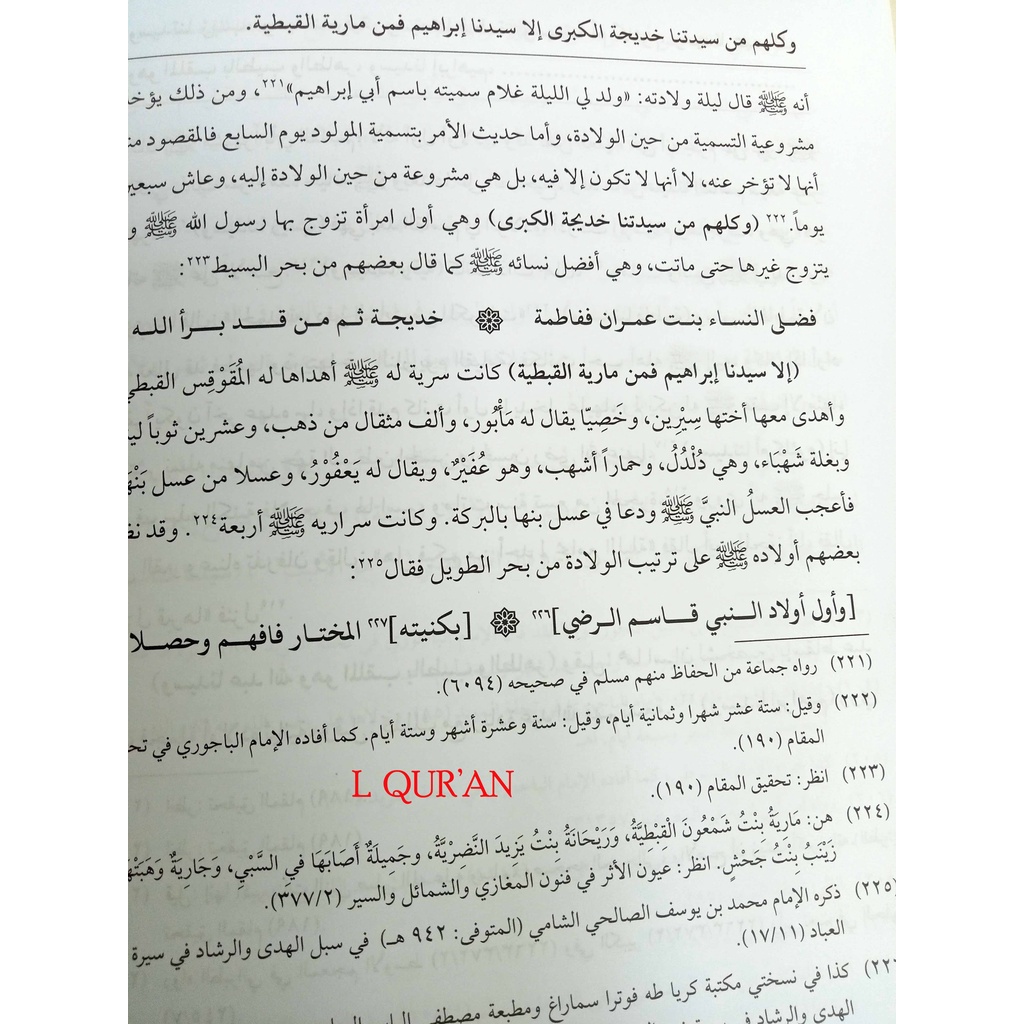 وكلهم من سيدتنا خديجة الكبرى إلا سيدنا إبراهيم فمن مارية القبطية.
أنه ﷺ قال ليلة ولادته: «ولد لي الليلة غلام سميته باسم أبي إبراهيم»٢٢١، ومن ذلك يؤخذ
مشروعية التسمية من حين الولادة، وأما حديث الأمر بتسمية المولود يوم السابع فالمقصود منه
أنها لا تؤخر عنه، لا أنها لا تكون إلا فيه، بل هي مشروعة من حين الولادة إليه، وعاش سبعين
يوماً.٢٢٢ (وكلهم من سيدتنا خديجة الكبرى) وهي أول امرأة تزوج بها رسول الله ﷺ و
يتزوج غيرها حتى ماتت، وهي أفضل نسائه ﷺ كما قال بعضهم من بحر البسيط٢٢٣:
فضلى النساء بنت عمران ففاطمة ۞ خديجة ثم من قد برأ الله
(إلا سيدنا إبراهيم فمن مارية القبطية) كانت سرية له ﷺ أهداها له المُقَوْقِس القبطي
وأهدى معها أختها سِيْرِين، وخَصِيّا يقال له مَأْبُور، وألف مثقال من ذهب، وعشرين ثوباً
وبغلة شَهْبَاء، وهي دُلْدُلُ، وحماراً أشهب، وهو عُفَيْرٌ، ويقال له يَعْفُوْرُ، وعسلا من عسل بَنْهَا
فأعجب العسلُ النبيَّ ﷺ ودعا في عسل بنها بالبركة. وكانت سراريه ﷺ أربعة٢٢٤. وقد
بعضهم أولاده ﷺ على ترتيب الولادة من بحر الطويل فقال٢٢٥:
[وأول أولاد النبي قاسم الرضي]٢٢٦ ۞ [بكنيته]٢٢٧ المختار فافهم وحصلا
(٢٢١) رواه جماعة من الحفاظ منهم مسلم في صحيحه (٦٠٩٤).
(٢٢٢) وقيل: ستة عشر شهرا وثمانية أيام، وقيل: سنة وعشرة أشهر وستة أيام. كما أفاده الإمام الباجوري في
المقام (١٩٠).
(٢٢٣) انظر: تحقيق المقام (١٩٠).
L QUR'AN
(٢٢٤) هن: مَارِيَةُ بِنْتُ شَمْعُونَ الْقِبْطِيَّةُ، وَرَيْحَانَةُ بِنْتُ يَزِيدَ النَّضْرِيَّةُ، وجَمِيلَةُ أَصَابَهَا في السَّبْيِ، وَجَارِيَةٌ وَهَبَتْهَا
زَيْنَبُ بِنْتُ جَحْشٍ. انظر: عيون الأثر في فنون المغازي والشمائل والسير (٣٧٧/٢).
(٢٢٥) ذكره الإمام محمد بن يوسف الصالحي الشامي (المتوفى: ٩٤٢ هـ) في سبل الهدى والرشاد في سيرة
العباد (١٧/١١).
كذا في نسختي مكتبة كريا طه فوترا سماراغ ومطبعة مصطفى
الهدى والرشاد في